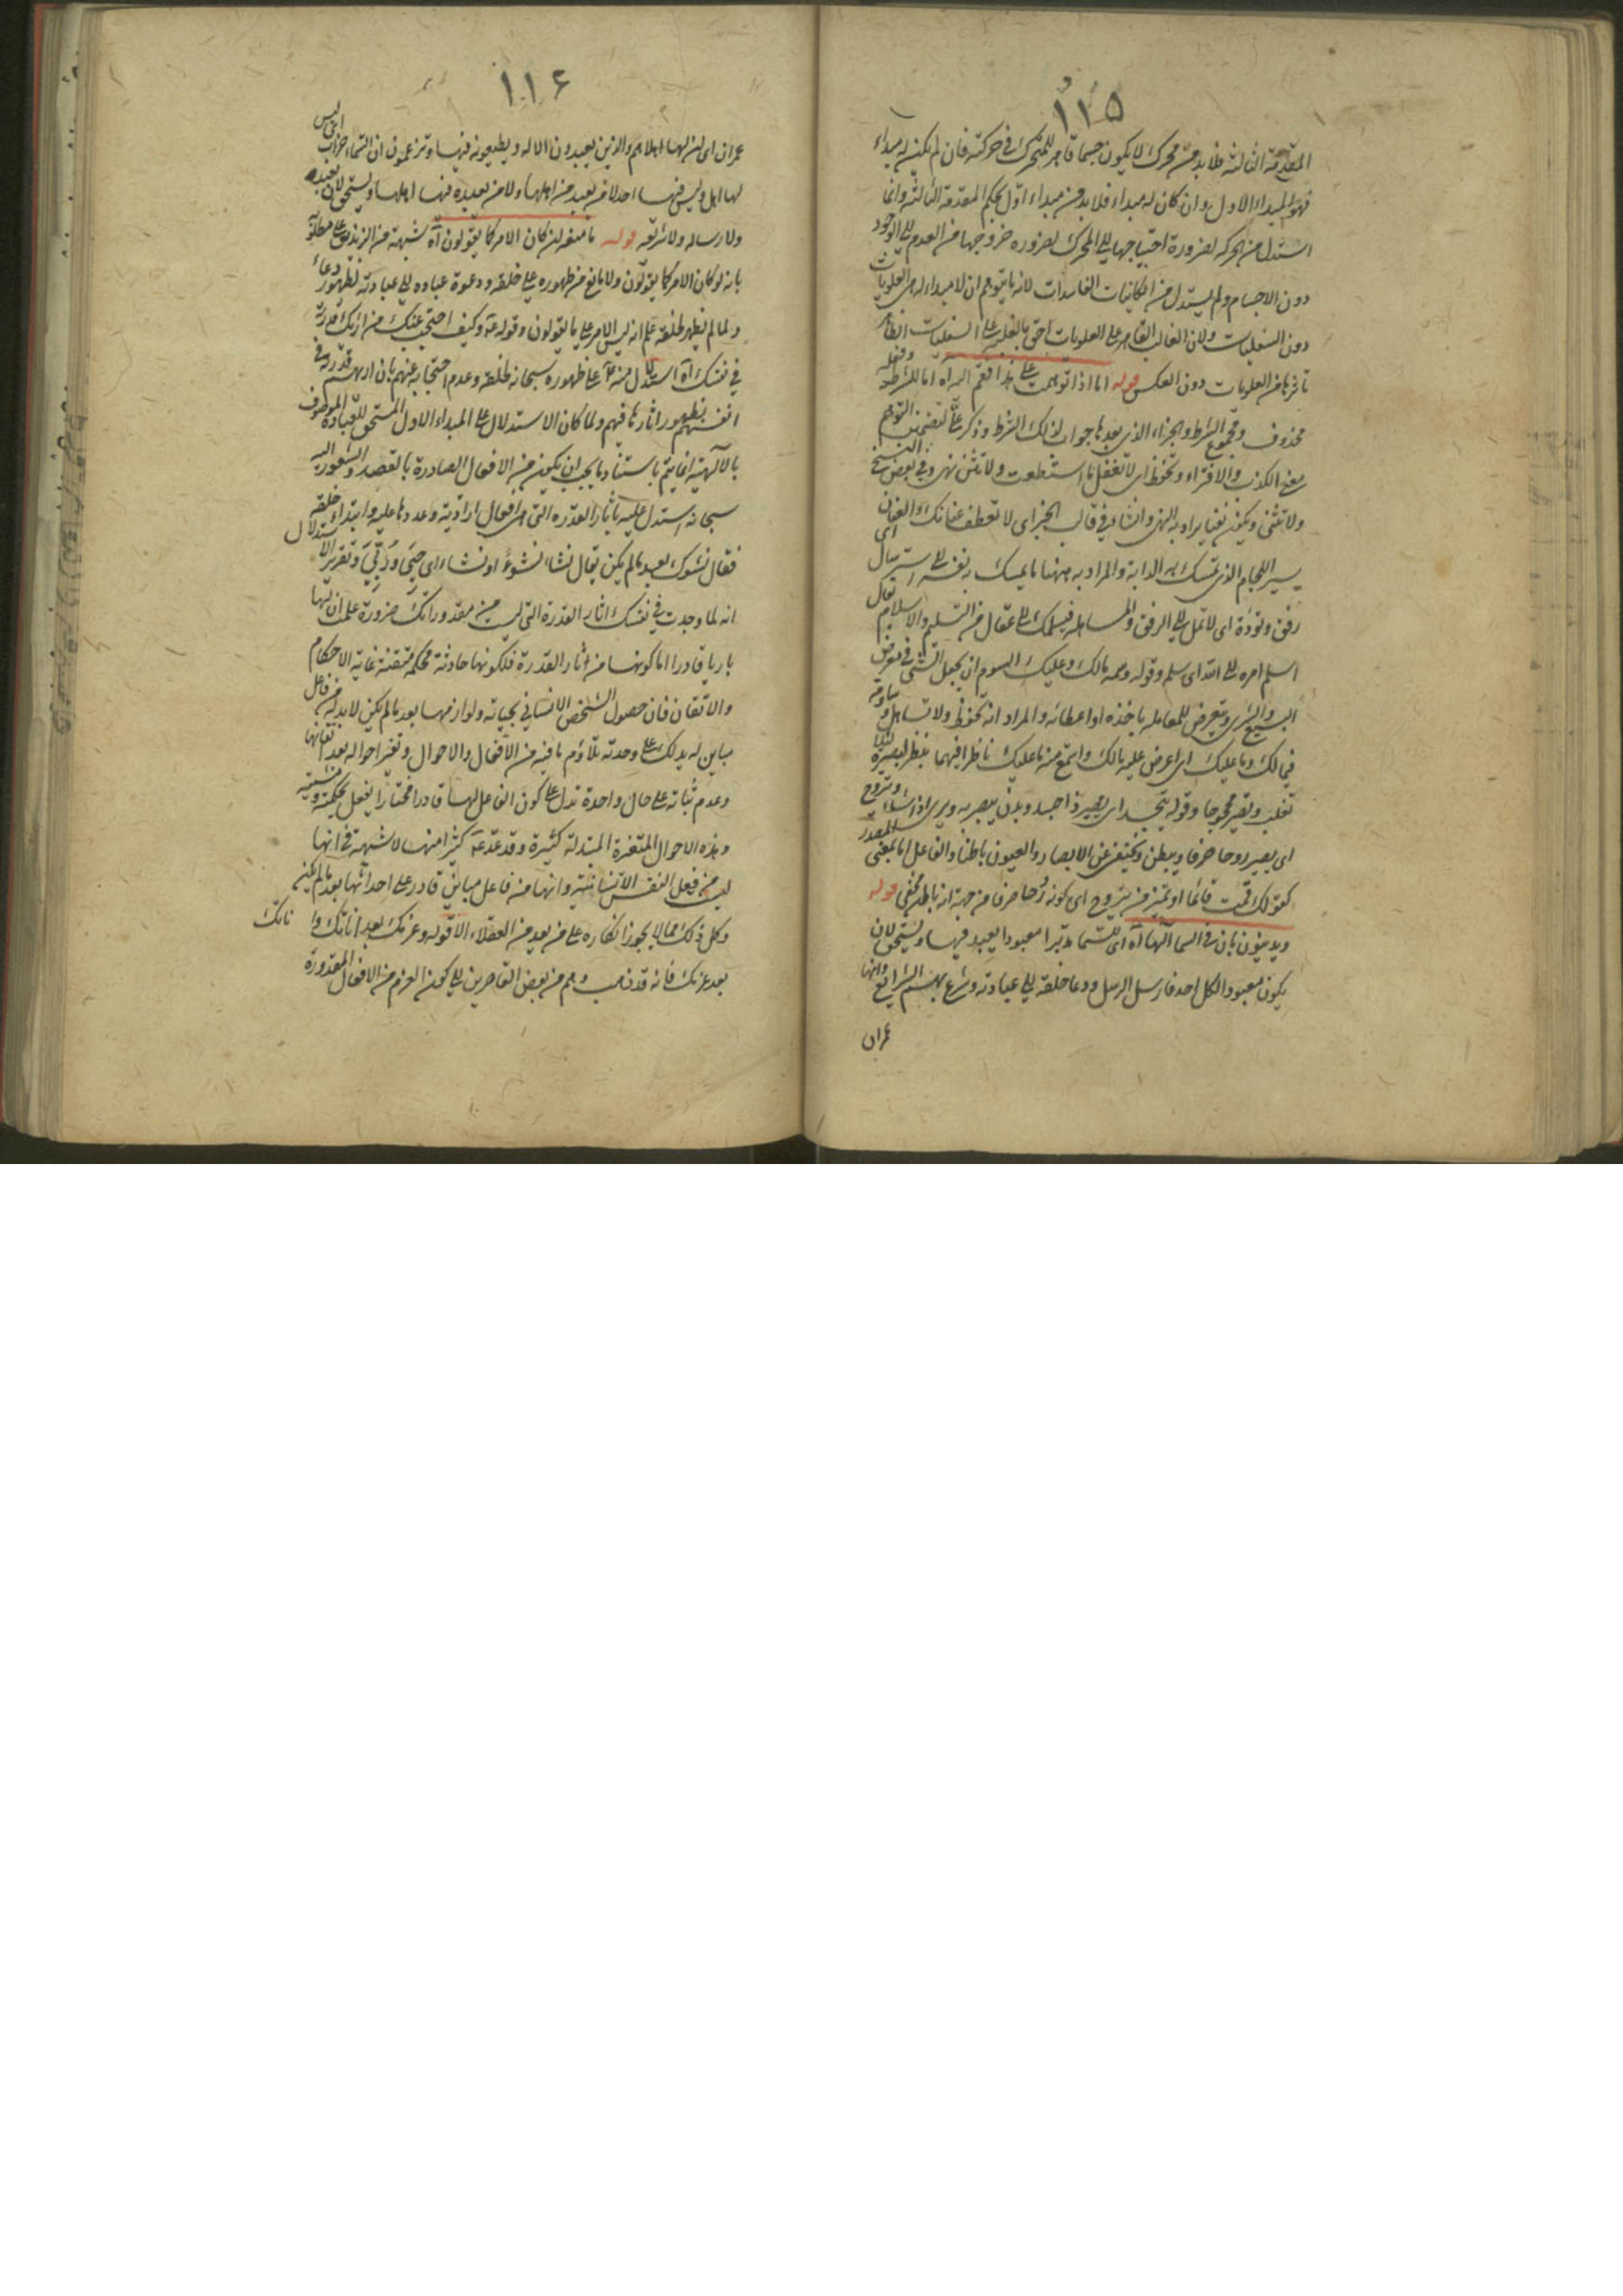 ١١٥
المقدمة الثالثة فلا بد من محرك لا يكون جسما قاهر للمتحرك في حركته فان لم يكن له مبداء
فهو المبداء الاول وان كان له مبداء فلا بد من مبداء اول بحكم المقدمة الثالثة وانما
استدل من الحركة لضرورة احتياجها الى المحرك لضرورة خروجها من العدم الى الوجود
دون الاجسام ولم يستدل من الكاينات الفاسدات لانه ما يتوهم ان لا مبداء له هي العلويات
دون السفليات ولان الغالب القاهر على العلويات احق بالغلبة على السفليات الظاهر
تاثرها من العلويات دون العكس قوله اما اذا توهمت على هذا فقم المرآه اما للشرط وفعله
محذوف ومجموع الشرط والجزاء الذي بعدها جواب لذلك الشرط وذكر على لتضمين التوهم
معنى الكذب والافتراء وتحفظ اى لا تغفل ما استطعت ولا تثن نهى وفي بعض النسخ
ولا تثنى ويكون نفيا يراد به النهى وانشاء في قالب الخبر اى لا تعطف عنانك والعنان
سير اللجام الذي تمسك به الدابة والمراد به ههنا ما يمسك به نفسه الى استرسال اى
رفق وتؤدة اى لا تمل الى الرفق والمساهله فيسلمك الى عقال من التسليم والاسلام يقال
اسلم امره الى الله اى سلم وقوله وسمه مالك وعليك السوم ان يجعل الشئ في معرض
البيع والشرى ويتعرض للمعاملة باخذه او اعطائه والمراد انه تحفظ ولا تساهل وساومه
فيما لك وما عليك اى اعرض عليه مالك واستمع منه ما عليك ناظرا فيهما بنظر البصيرة لئلا
تغلب وتصير محجوجا وقوله يتجسد اى يصير ذا جسد وبدن يبصر به ويرى اذا شاء ويتروح
اى يصير روحا صرفا ويبطن ويختفى عن الابصار والعيون باطنا والفاعل اما بمعنى المصدر
كقولك قمت قائما او تميز من يتروح اى كونه روحا صرفا من جهة انه باطن مخفى قوله
ويدينون بان في السماء آلها آه اى للسماء مدبرا معبودا يعبد فيها ويستحق لان
يكون معبودا لكل احد فارسل الرسل ودعا خلقه الى عبادته وشرع بهم الشرايع وانها
عمران
١١٦
عمران اى ان لها اهلا هم والذين يعبدون الاله ويطيعونه فيها وتزعمون ان السماء خراب اى ليس
لها اهل وليس فيها احد لا من يعبد من اهلها ولا من يعبده فيها اهلها ويستحق لان يعبده
ولا رسالة ولا شريعه قوله ما منعه ان كان الامر كما يقولون آه شبهة من الزنديق على مطلق
بانه لو كان الامر كما يقولون ولا مانع من ظهوره على خلقه ودعوة عباده الى عبادته لظهور دعاء
ولما لم يظهر لخلقه علم انه ليس الامر على ما يقولون وقوله ع وكيف احتجب عنك من اراك قدرته
في نفسك آه استدلال منه ع على ظهوره سبحانه لخلقه وعدم احتجابه عنهم بان اريهم قدرته في
انفسهم بظهور اثارها فيهم ولما كان الاستدلال على المبداء الاول المستحق للعبادة الموصوف
بالآلهية انما يتم باستناد ما يجب ان يكون من الافعال الصادرة بالقصد والشعور اليه
سبحانه استدل عليه باثار القدره التى هي افعال ارادية وعددها عليه وابتداء خلقه
فقال نشوك بعد ما لم يكن يقال نشاء نشوءً اونشاء اى حيى وربى وتقرير الاستدلال
انه لما وجدت في نفسك اثار القدرة التى ليست من مقدوراتك ضرورة علمت ان لها
باريا قادرا اما كونها من اثار القدرة فلكونها حادثة محكمة متقنة غاية الاحكام
والاتقان فان حصول الشخص الانساني بحياته ولوازمها بعد ما لم يكن لابد له من فاعل
مباين له يدلك على وحدته تلاؤم ما فيه من الافعال والاحوال وتغير احواله بعد اتقانها
وعدم ثباته على حال واحدة تدل على كون الفاعل لها قادرا مختارا يفعل بحكمته ومشيته
وهذه الاحوال المتغيرة المتبدلة كثيرة وقد عد ع كثيرا منها لا شبهة في انها
ليست من فعل النفس الانسانية وانها من فاعل مباين قادر على احداثها بعد ما لم يكن
وكل ذلك مما لا يجوز انكاره على من يعد من العقلاء الا قوله وعزمك بعد اناتك وا ناتك
بعد عزمك فانه قد ذهب وهم من بعض القاصرين الى كون العزم من الافعال المقدورة